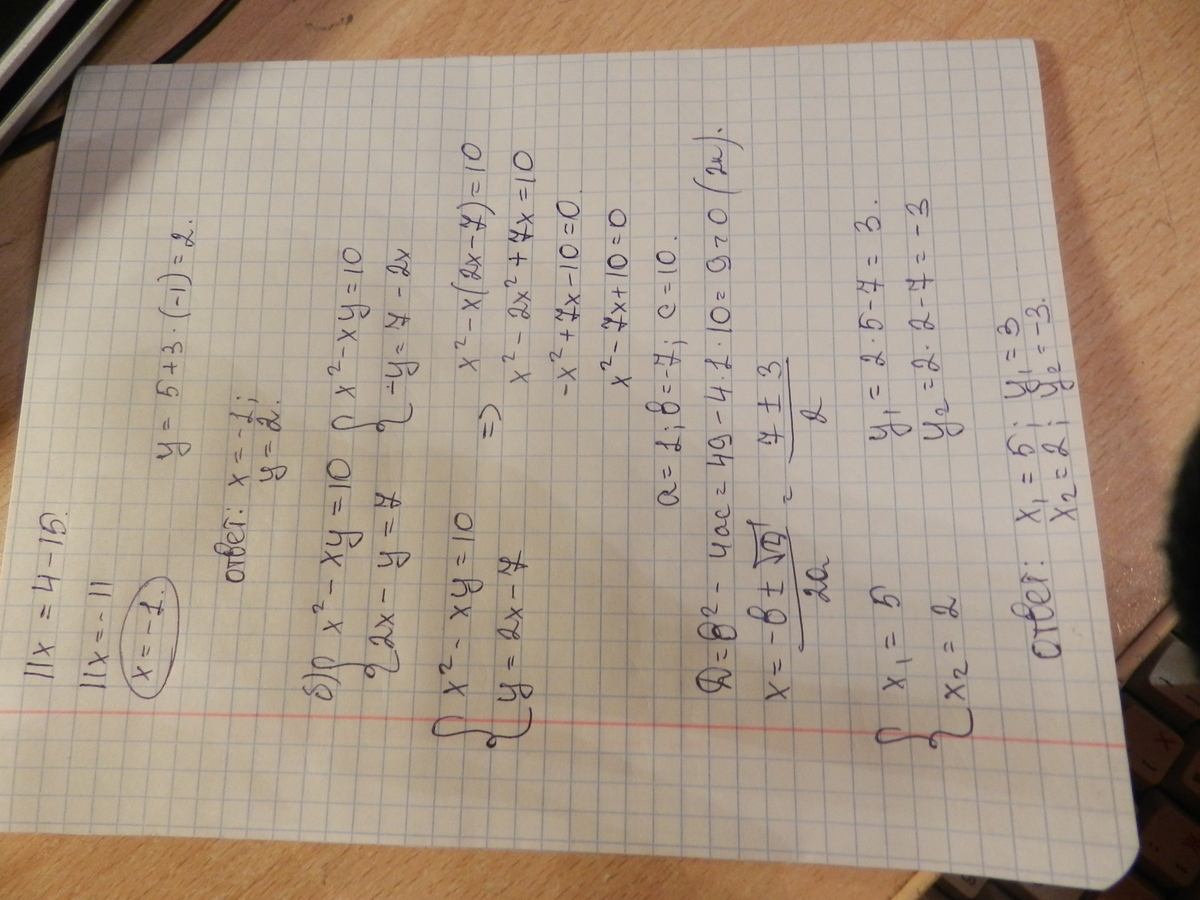 11x = 4 - 15.
11x = -11
x = -1.
y = 5 + 3 · (-1) = 2.
ответ: x = -1;
y = 2.
б) { x² - xy = 10 { x² - xy = 10
{ 2x - y = 7 { -y = 7 - 2x
{ x² - xy = 10
{ y = 2x - 7
=> x² - x(2x - 7) = 10
x² - 2x² + 7x = 10
-x² + 7x - 10 = 0.
x² - 7x + 10 = 0
a = 1; в = -7; c = 10.
D = в² - 4ac = 49 - 4 · 1 · 10 = 9 > 0 (2к).
x = (-в ± √D) / 2a = (7 ± 3) / 2
{ x₁ = 5 y₁ = 2 · 5 - 7 = 3.
{ x₂ = 2 y₂ = 2 · 2 - 7 = -3
ответ: x₁ = 5; y₁ = 3
x₂ = 2; y₂ = -3.